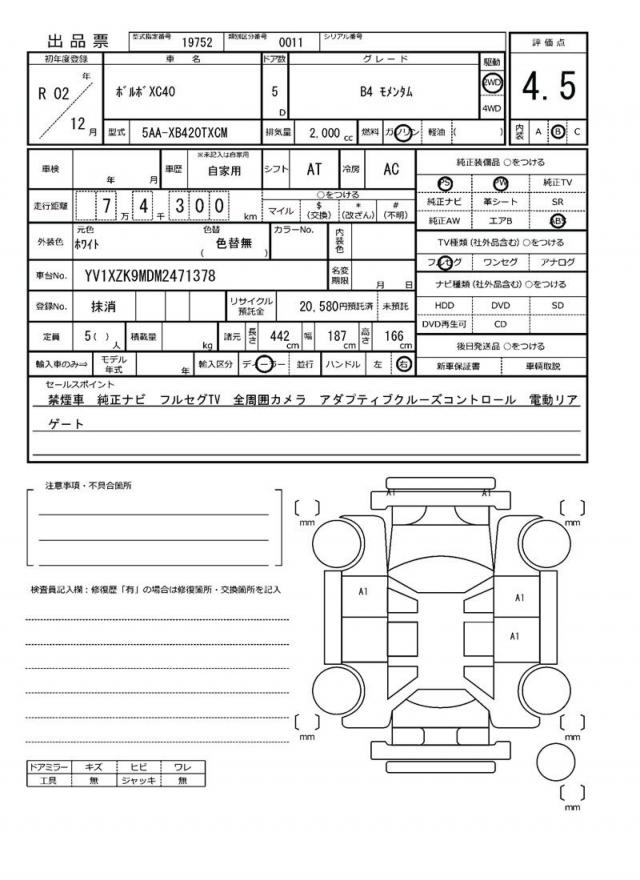 出品票 型式指定番号 19752 類別区分番号 0011 シリアル番号
初年度登録 車名 ドア数 グレード 駆動 評価点
R 02 年 ボルボXC40 5 D B4 モメンタム 2WD 4.5
4WD
12 月 型式 5AA-XB420TXCM 排気量 2,000 cc 燃料 ガソリン 軽油 ( ) 内装 A B C
車検 年 月 車歴 ※未記入は自家用 自家用 シフト AT 冷房 AC 純正装備品 ○をつける
PS PW 純正TV
走行距離 7 万 4 千 300 km ○をつける
マイル $ (交換) * (改ざん) # (不明) 純正ナビ 革シート SR
純正AW エアB ABS
外装色 元色 ホワイト 色替 ( 色替無 ) カラーNo. 内装色 TV種類 (社外品含む) ○をつける
フルセグ ワンセグ アナログ
車台No. YV1XZK9MDM2471378 名変期限 月 日 ナビ種類 (社外品含む) ○をつける
登録No. 抹消 リサイクル預託金 20,580円預託済 未預託 HDD DVD SD
DVD再生可 CD
定員 5( ) 人 積載量 kg 諸元 長さ 442 cm 幅 187 cm 高さ 166 cm 後日発送品 ○をつける
輸入車のみ⇒ モデル年式 年 輸入区分 ディーラー 並行 ハンドル 左 右 新車保証書 車輌取説
セールスポイント
禁煙車 純正ナビ フルセグTV 全周囲カメラ アダプティブクルーズコントロール 電動リア
ゲート
注意事項・不具合箇所
検査員記入欄：修復歴「有」の場合は修復箇所・交換箇所を記入
A1 A1
mm mm
A1 A1
A1
mm mm
mm
ドアミラー キズ ヒビ ワレ
工具 無 ジャッキ 無